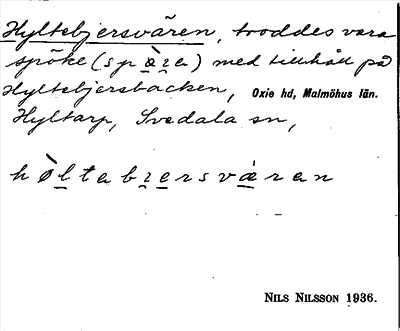 Hyltebjersvären, troddes vara
spöke (spøka) med tillhåll på
Hyltebjersbacken, Oxie hd, Malmöhus län.
Hyltarp, Svedala sn,
høltebjersværen
NILS NILSSON 1936.